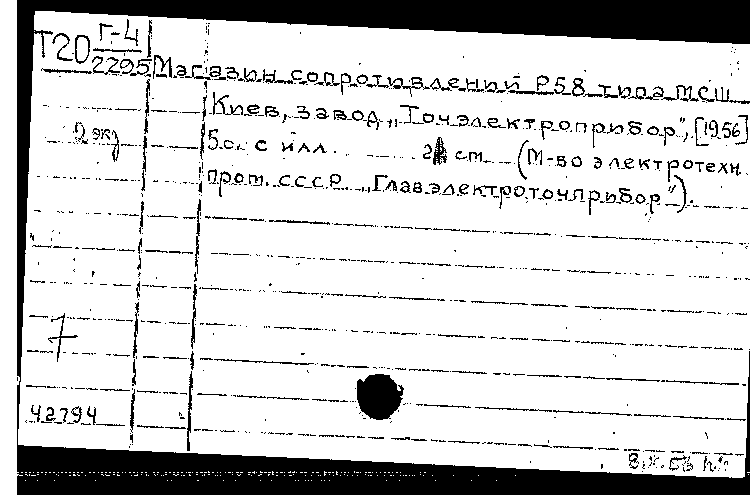 Т20 Г-4
2295 Магазин сопротивлений Р58 типа МСШ
Киев, завод „Точэлектроприбор", [1956]
2 экз 5 с. с илл. см. (М-во электротехн.
пром. СССР „Главэлектроточприбор").
7
42794